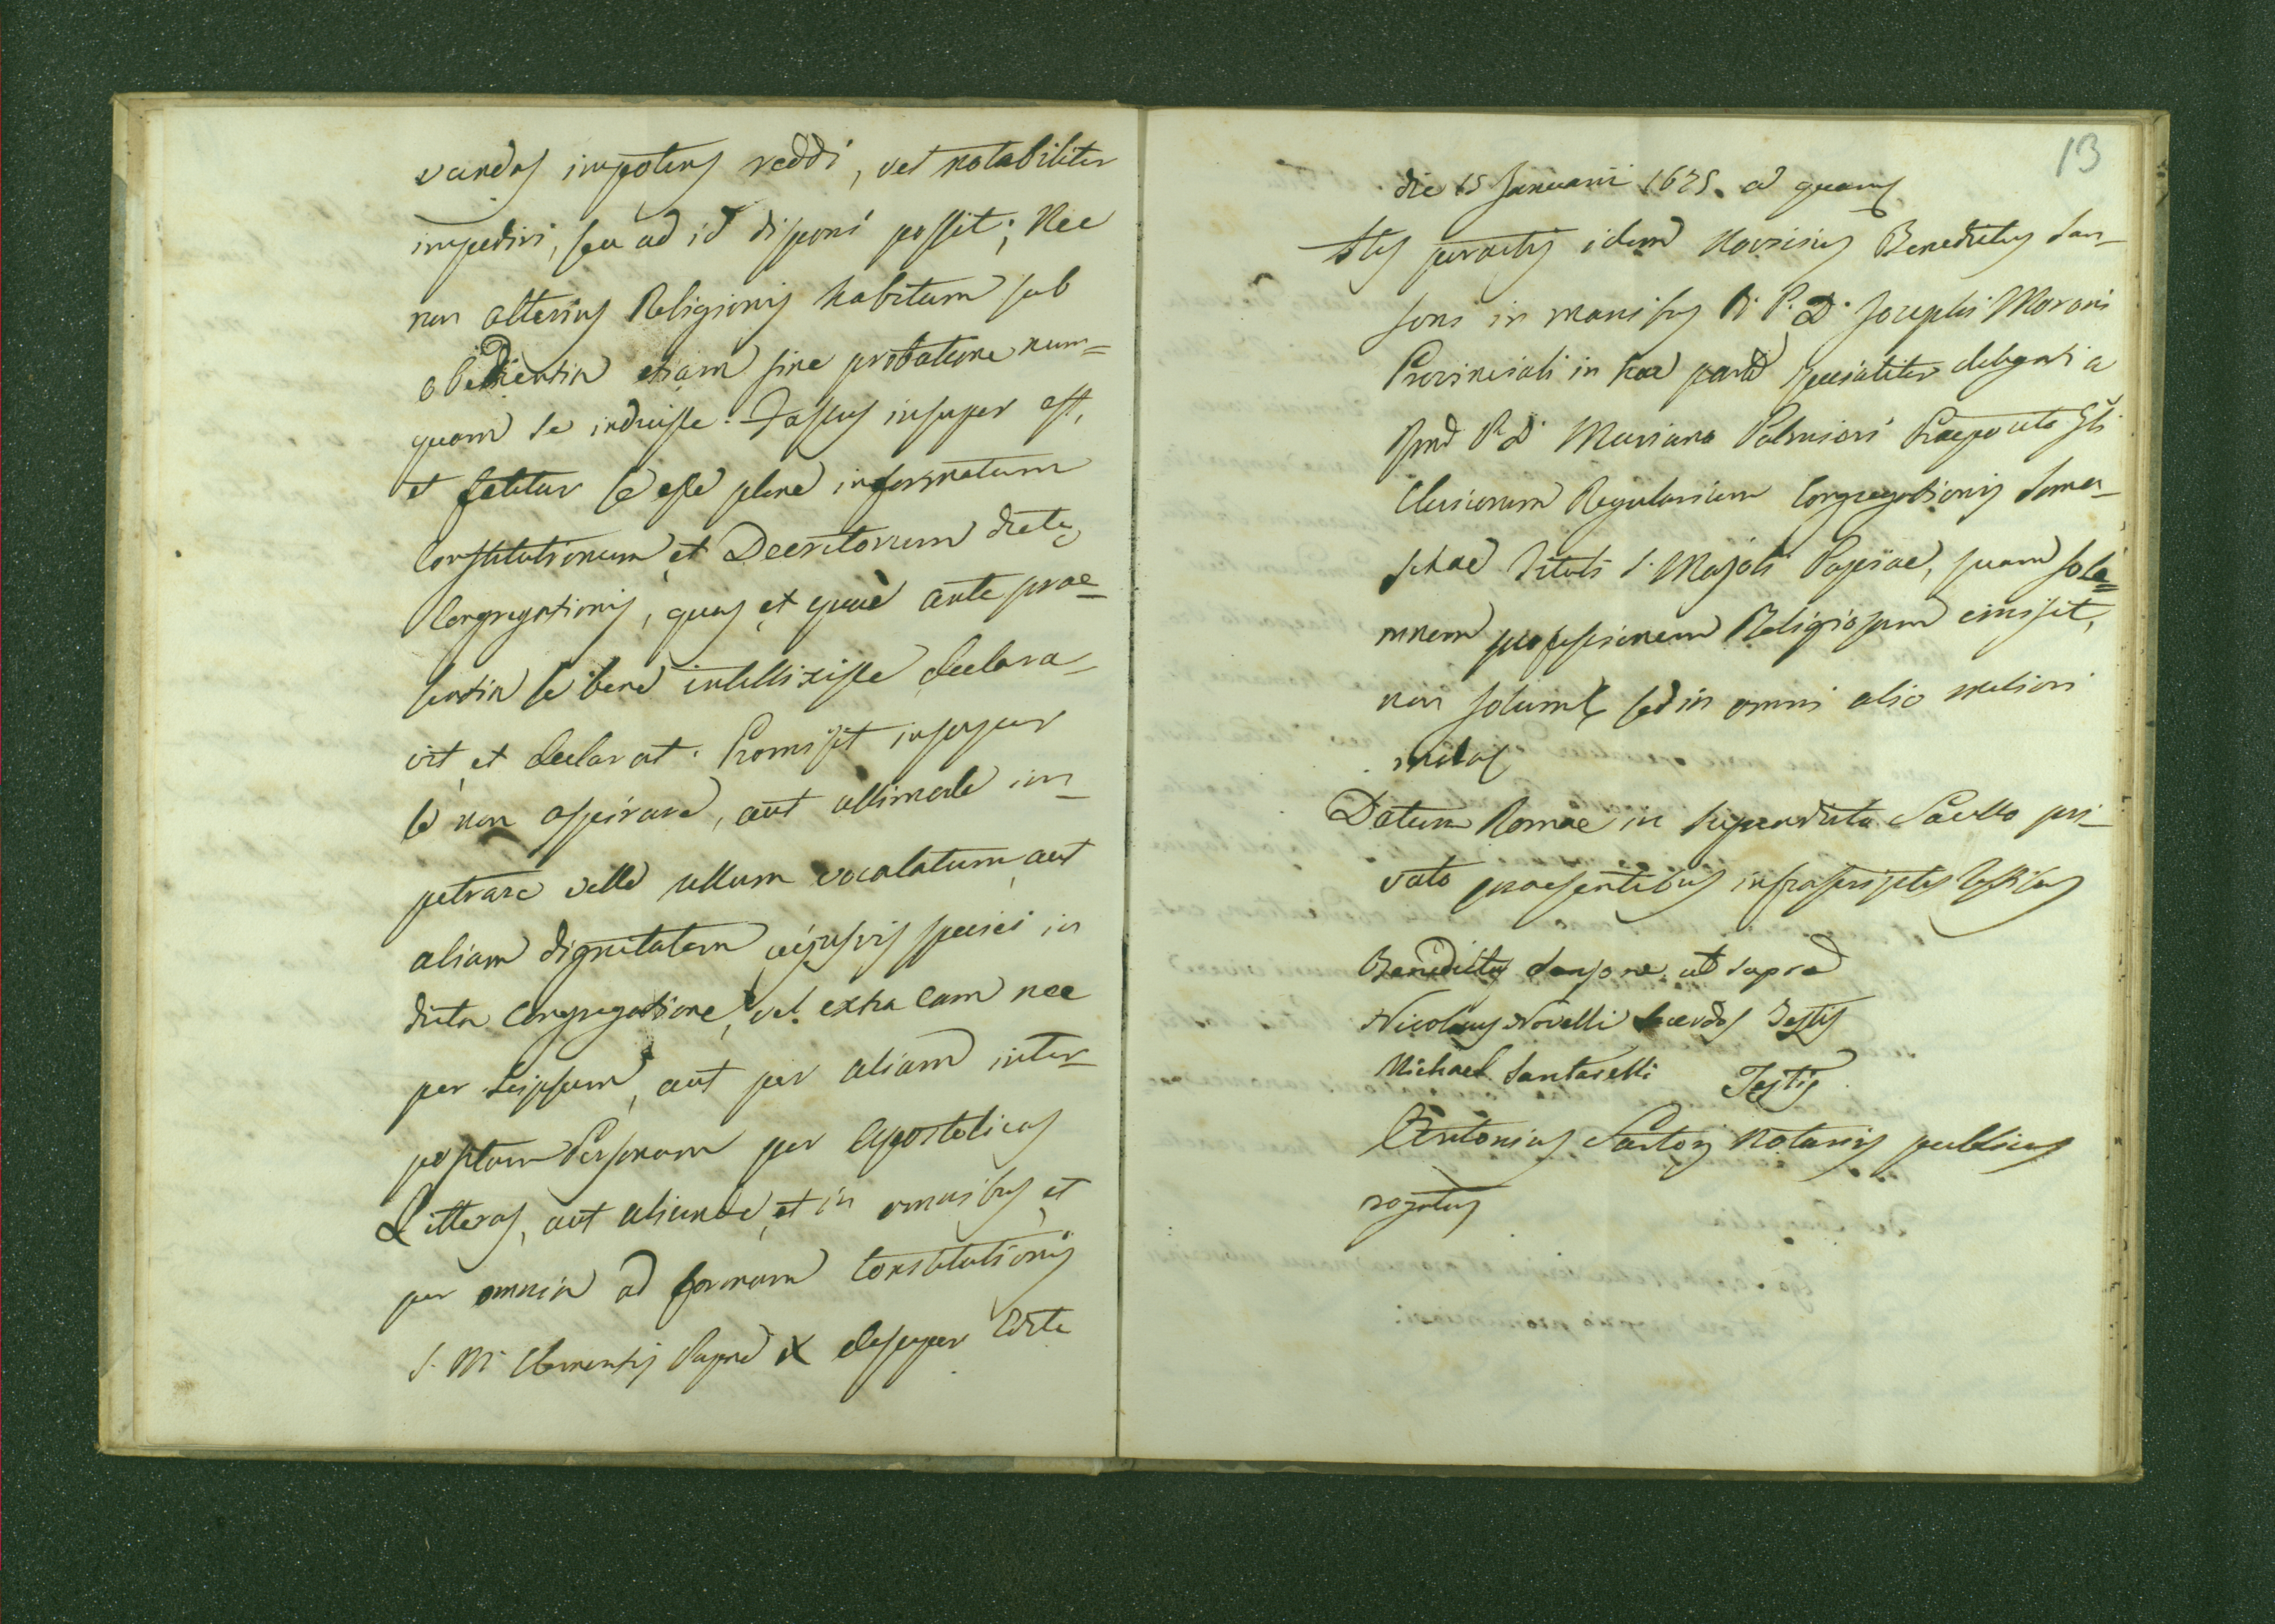 vandas impotens reddi, vel notabiliter
impediri, seu ad id disponi possit; Nec
non alterius Religionis habitum sub
obedientia etiam sine probatione num=
quam se induisse. Fassus insuper est,
et fatetur se esse plene informatum
Constitutionum et Decretorum dictę
Congregationis, quas et quae ante prae=
sentia se bene intellixisse declara-
vit et declarat. Promisit insuper
se non aspirare, aut ullimode im-
petrare velle ullum vocalatum aut
aliam dignitatem cujusvis speciei in
dicta Congregatione, vel extra eam nec
per seipsum, aut per aliam inter-
positam Personam per Apostolicas
Litteras, aut aliunde, et in omnibus et
per omnia ad formam Constitutionis
S. M. Clementis Papae X desuper edita
13
die 15 Januarii 1675. a
stis peractis idem Novisius Benedictus San-
soni in manibus R. P. D. Josephi Moroni
Provinciali in hac parte specialiter delegati a
Rmo P. D. Mariano Palmieri Praeposito Gli
Clericorum Regularium Congregationis Soma-
schae Tituli S. Majoli Papiae, suam sole=
mnem professionem Religiosam emisit,
non solum sed in omni alio meliori
Datum Romae in supradicto Sacello pri-
vato praesentibus infrascriptis testibus
Benedictus Sansone ut supra
Nicolaus Novelli Sacerdos Testis
Michael Santarelli Testis
Antonius Sartorj Notarius publicus
rogatus